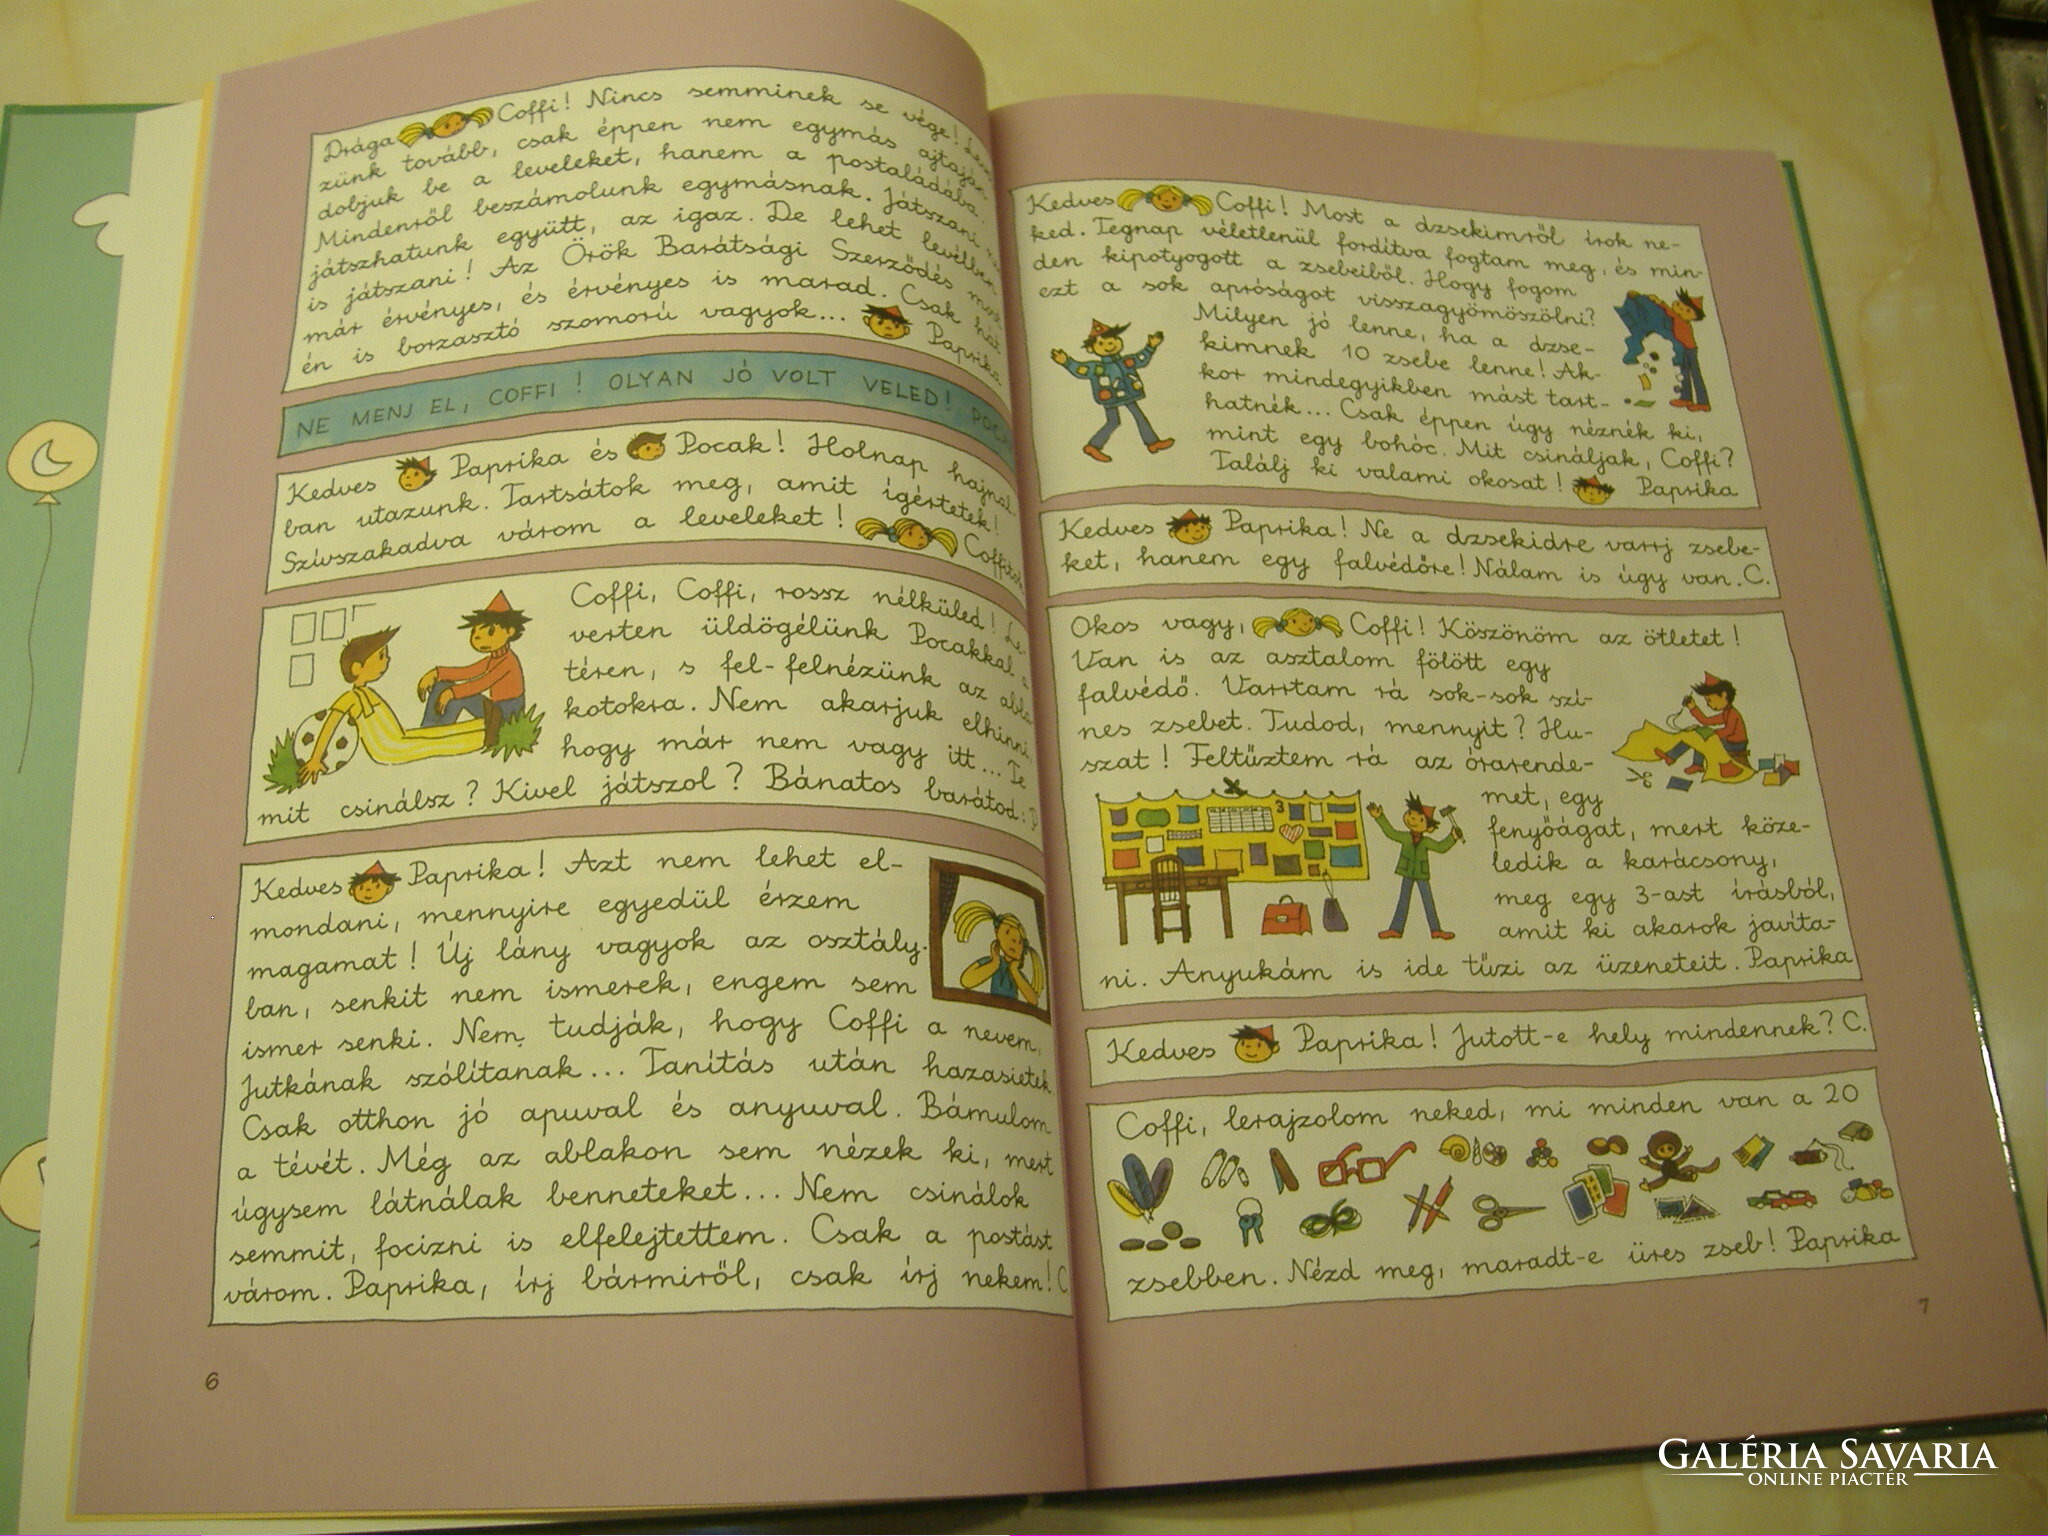 Drága Coffi! Nincs semminek se vége!
zünk tovább, csak éppen nem egymás ajtaján
dobjuk be a leveleket, hanem a postaládába.
Mindenről beszámolunk egymásnak. Játszani
játszhatunk együtt, az igaz. De lehet levélben
is játszani! Az Örök Barátsági Szerződés most
már érvényes, és érvényes is marad. Csak hát
én is borzasztó szomorú vagyok... Paprika
NE MENJ EL, COFFI! OLYAN JÓ VOLT VELED!
Kedves Paprika és Pocak! Holnap hajnal-
ban utazunk. Tartsátok meg, amit ígértetek!
Szívszakadva várom a leveleket!
Coffi, Coffi, rossz nélküled! Le-
verten üldögélünk Pocakkal a
téren, s fel-felnézünk az abla-
kotokra. Nem akarjuk elhinni,
hogy már nem vagy itt... Te
mit csinálsz? Kivel játszol? Bánatos barátod: P
Kedves Paprika! Azt nem lehet el-
mondani, mennyire egyedül érzem
magamat! Új lány vagyok az osztály-
ban, senkit nem ismerek, engem sem
ismer senki. Nem tudják, hogy Coffi a nevem,
Jutkának szólítanak... Tanítás után hazasietek.
Csak otthon jó apuval és anyuval. Bámulom
a tévét. Még az ablakon sem nézek ki, mert
úgysem látnálak benneteket... Nem csinálok
semmit, focizni is elfelejtettem. Csak a postást
várom. Paprika, írj bármiről, csak írj nekem! C
6
Kedves Coffi! Most a dzsekimről írok ne-
ked. Tegnap véletlenül fordítva fogtam meg, és min-
den kipotyogott a zsebeiből. Hogy fogom
ezt a sok apróságot visszagyömöszölni?
Milyen jó lenne, ha a dzse-
kimnek 10 zsebe lenne! Ak-
kor mindegyikben mást tart-
hatnék... Csak éppen úgy néznék ki,
mint egy bohóc. Mit csináljak, Coffi?
Találj ki valami okosat! Paprika
Kedves Paprika! Ne a dzsekidre varrj zsebe-
ket, hanem egy falvédőre! Nálam is úgy van. C.
Okos vagy, Coffi! Köszönöm az ötletet!
Van is az asztalom fölött egy
falvédő. Varrtam rá sok-sok szí-
nes zsebet. Tudod, mennyit? Hu-
szat! Feltűztem rá az órarende-
met, egy
fenyőágat, mert köze-
ledik a karácsony,
meg egy 3-ast írásból,
amit ki akarok javíta-
ni. Anyukám is ide tűzi az üzeneteit. Paprika
3
Kedves Paprika! Jutott-e hely mindennek? C.
Coffi, lerajzolom neked, mi minden van a 20
zsebben. Nézd meg, maradt-e üres zseb! Paprika
7
GALÉRIA SAVARIA
ONLINE PIACTÉR